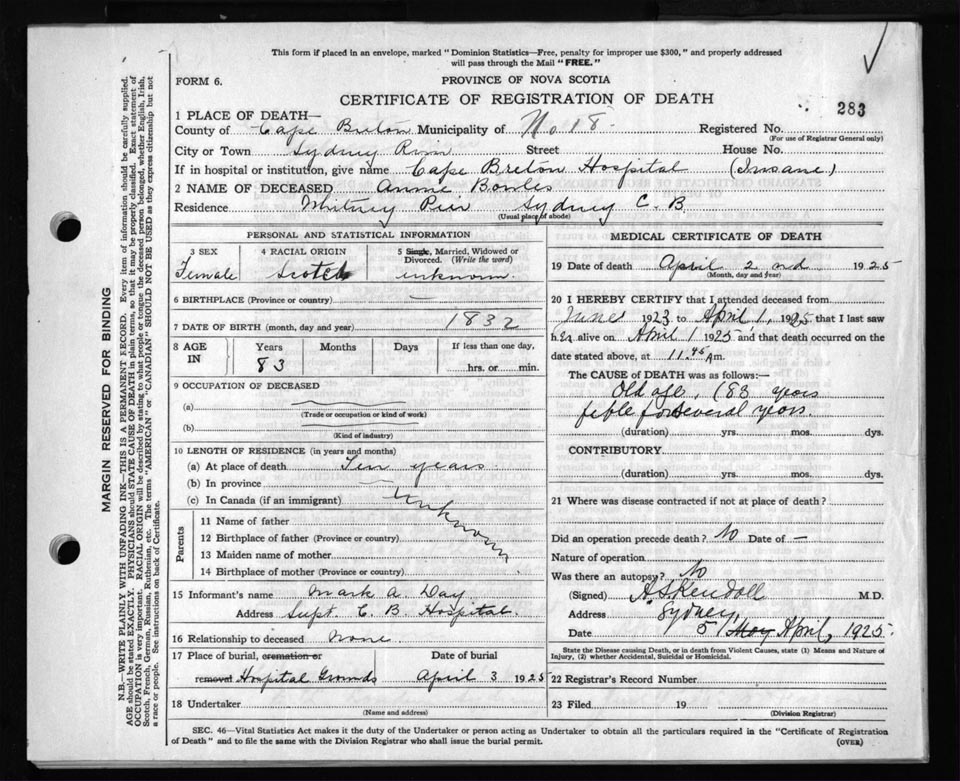 This form if placed in an envelope, marked "Dominion Statistics—Free, penalty for improper use $300," and properly addressed
will pass through the Mail "FREE."
FORM 6.
PROVINCE OF NOVA SCOTIA
CERTIFICATE OF REGISTRATION OF DEATH
283
1 PLACE OF DEATH—
County of Cape Breton Municipality of No 18. Registered No.
(For use of Registrar General only)
City or Town Sydney River Street House No.
If in hospital or institution, give name Cape Breton Hospital (Insane)
2 NAME OF DECEASED Annie Bowles
Residence Whitney Pier Sydney C. B.
(Usual place of abode)
PERSONAL AND STATISTICAL INFORMATION
3 SEX
Female
4 RACIAL ORIGIN
Scotch
5 Single, Married, Widowed or
Divorced. (Write the word)
unknown.
6 BIRTHPLACE (Province or country) —
7 DATE OF BIRTH (month, day and year) 1832
8 AGE
IN
Years
83
Months
Days
If less than one day,
hrs. or min.
9 OCCUPATION OF DECEASED
(a)
(Trade or occupation or kind of work)
(b)
(Kind of industry)
10 LENGTH OF RESIDENCE (in years and months)
(a) At place of death Ten years
(b) In province —
(c) In Canada (if an immigrant)
Unknown
Parents
11 Name of father
12 Birthplace of father (Province or country)
13 Maiden name of mother
14 Birthplace of mother (Province or country)
15 Informant's name Mark A. Day
Address Supt. C. B. Hospital.
16 Relationship to deceased None.
17 Place of burial, cremation or
removal Hospital Grounds
Date of burial
April 3 1925
18 Undertaker
(Name and address)
MEDICAL CERTIFICATE OF DEATH
19 Date of death April 2nd 1925
(Month, day and year)
20 I HEREBY CERTIFY that I attended deceased from
June 1923 to April 1, 1925 that I last saw
her alive on April 1 1925 and that death occurred on the
date stated above, at 11.45 Am.
The CAUSE of DEATH was as follows:—
Old age, (83 years
feble for several years.
(duration) yrs. mos. dys.
CONTRIBUTORY
(duration) yrs. mos. dys.
21 Where was disease contracted if not at place of death?
Did an operation precede death? No Date of —
Nature of operation
Was there an autopsy? No
(Signed) A S Kendall M.D.
Address Sydney,
Date 5 May April, 1925.
State the Disease causing Death, or in death from Violent Causes, state (1) Means and Nature of
Injury, (2) whether Accidental, Suicidal or Homicidal.
22 Registrar's Record Number
23 Filed 19
(Division Registrar)
SEC. 46—Vital Statistics Act makes it the duty of the Undertaker or person acting as Undertaker to obtain all the particulars required in the "Certificate of Registration
of Death" and to file the same with the Division Registrar who shall issue the burial permit.
(OVER)
MARGIN RESERVED FOR BINDING
N.B.—WRITE PLAINLY WITH UNFADING INK—THIS IS A PERMANENT RECORD. Every item of information should be carefully supplied.
AGE should be stated EXACTLY. PHYSICIANS should STATE CAUSE OF DEATH in plain terms, so that it may be properly classified. Exact statement of
OCCUPATION is very important. RACIAL ORIGIN will be described by stating to what people or tongue the deceased person belonged, whether English, Irish,
Scotch, French, German, Russian, Ruthenian, etc. The terms "AMERICAN" or "CANADIAN" SHOULD NOT BE USED as they express citizenship but not
a race or people. See instructions on back of Certificate.